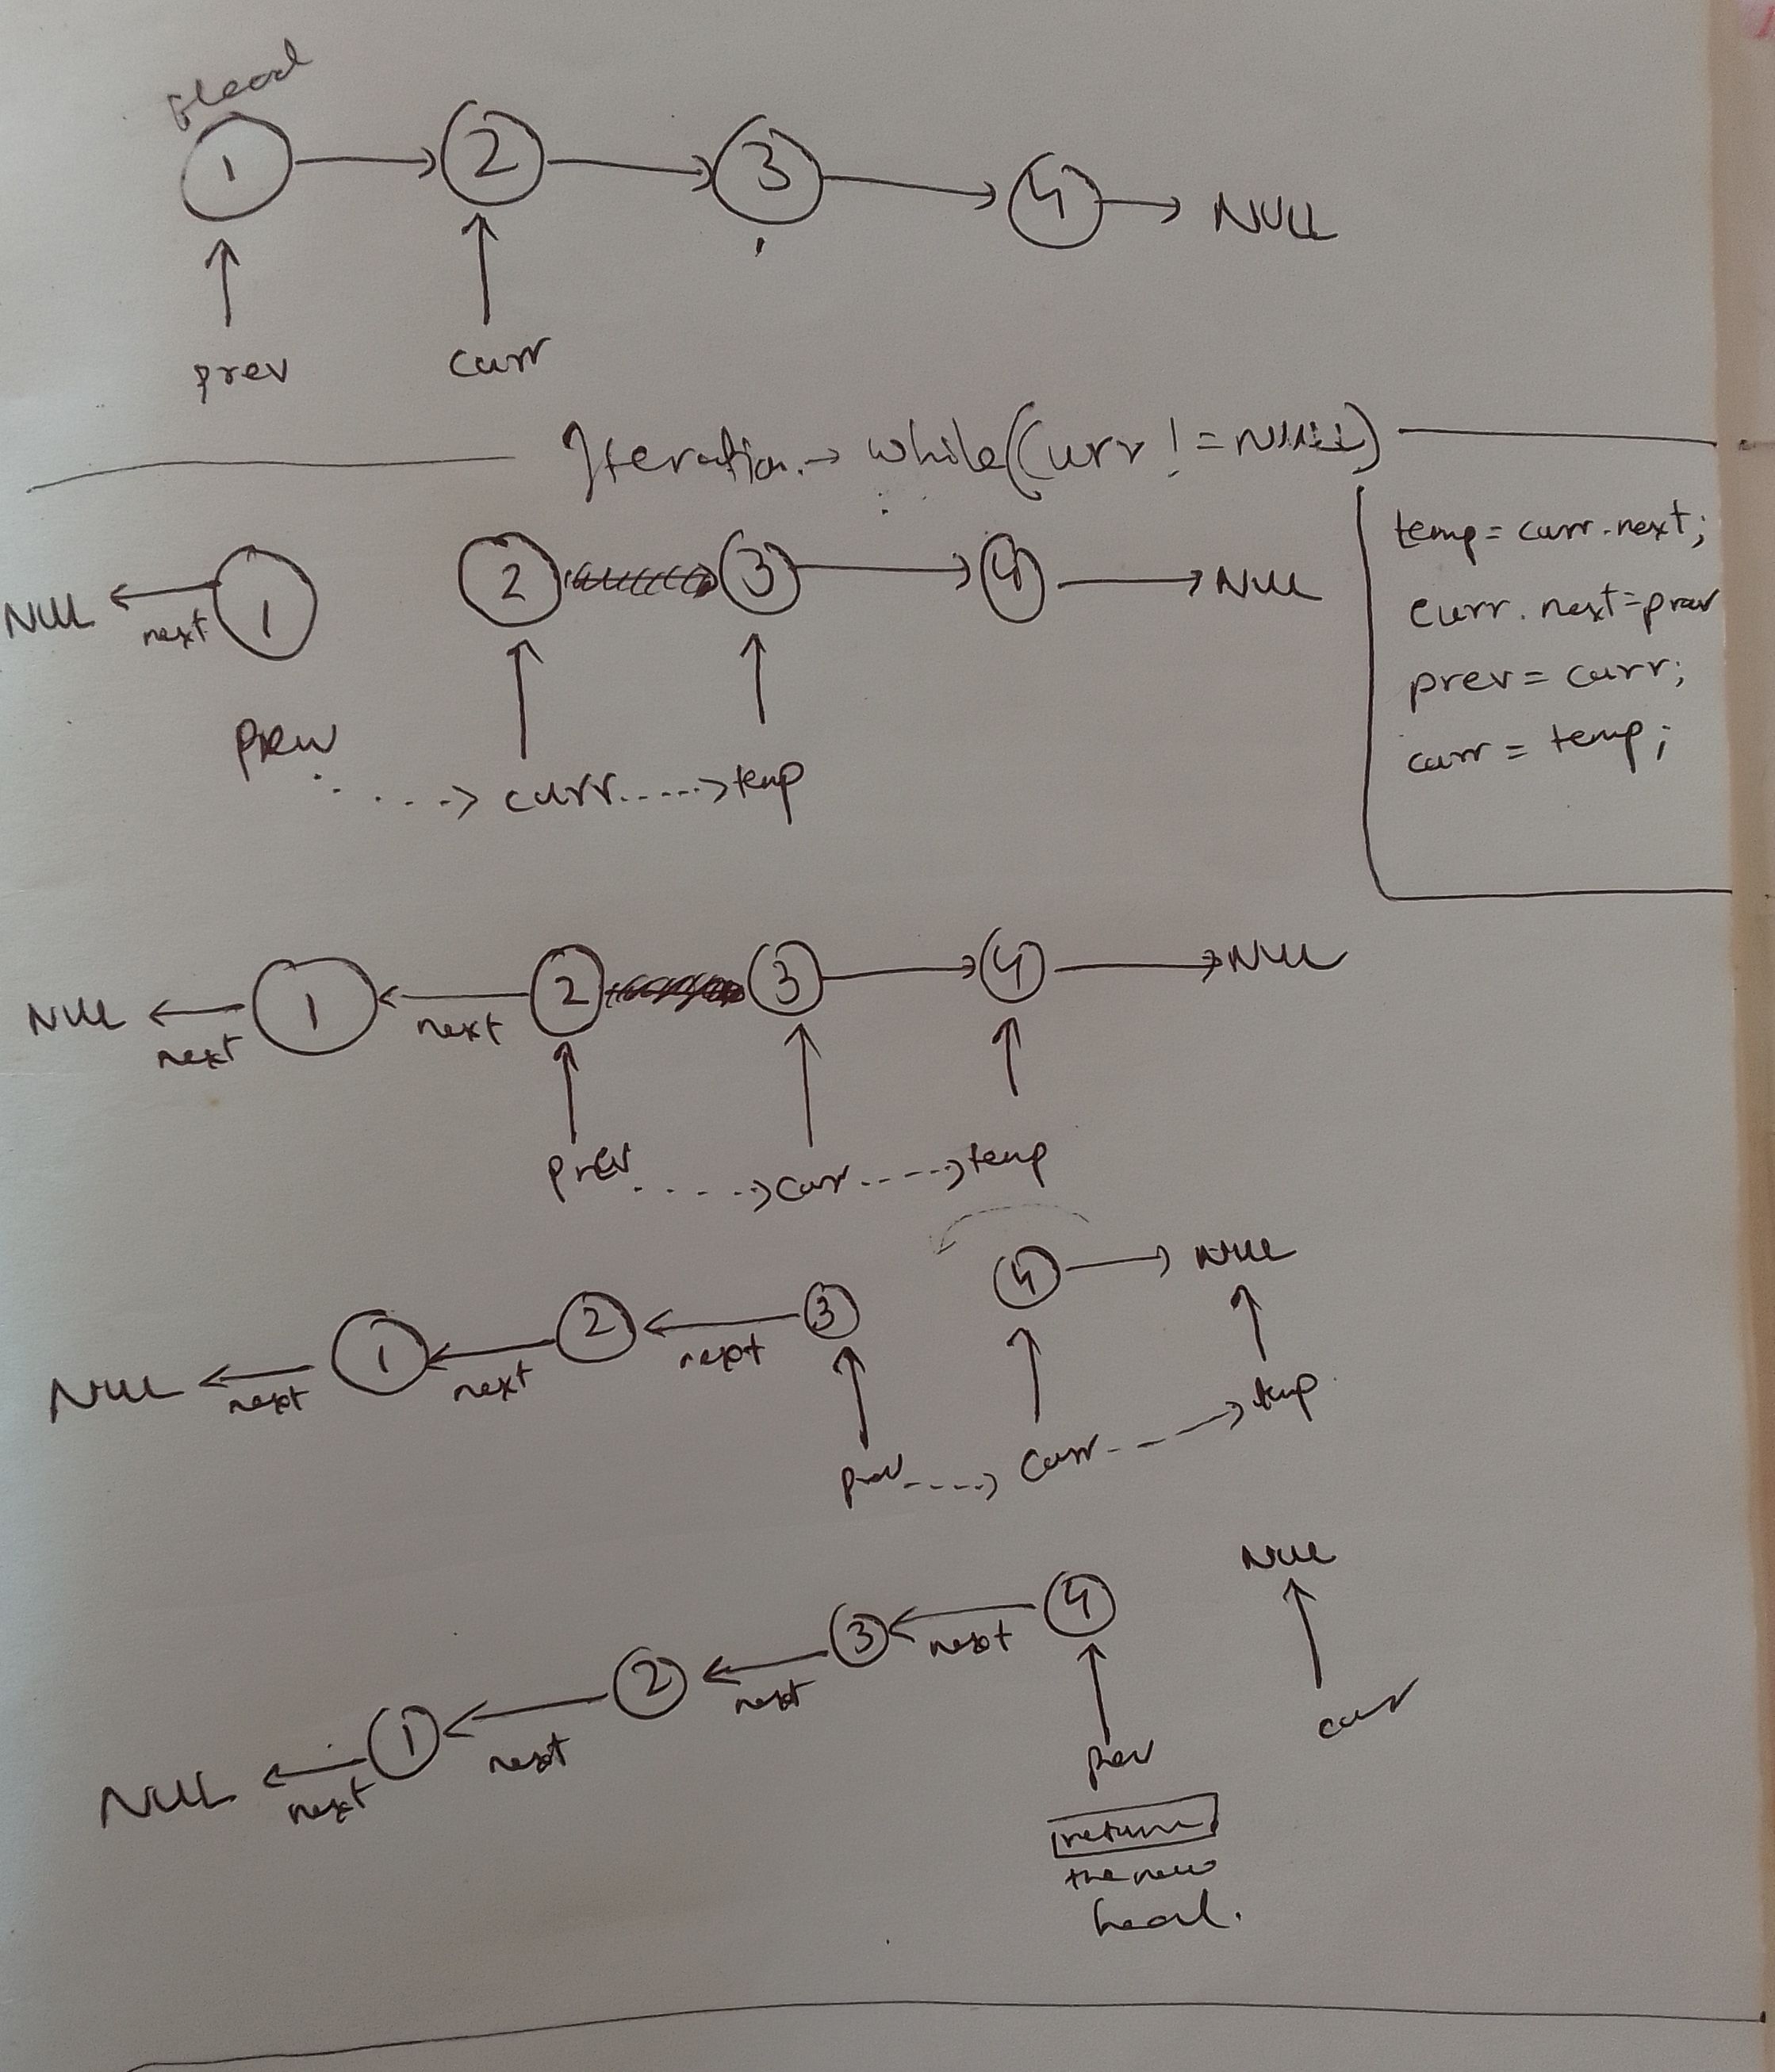 Head
1 2 3 4 NULL
prev curr
Iteration → while(curr != NULL)
temp = curr.next;
curr.next=prev
prev = curr;
curr = temp;
NULL next 1 2 3 4 NULL
prev curr temp
NULL next 1 next 2 3 4 NULL
prev curr temp
NULL next 1 next 2 next 3 4 NULL
prev curr temp
NULL next 1 next 2 next 3 next 4 NULL
prev curr
return
the new
head.